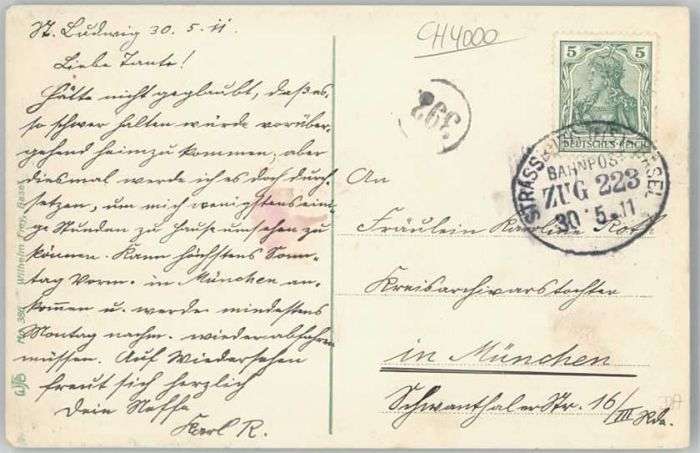 St. Ludwig 30. 5. 11.
Liebe Tante!
Hätte nicht geglaubt, daß es
so schwer halten würde vorüber-
gehend heimzukommen; aber
diesmal werde ich es doch durch-
setzen, um mich wenigstens eini-
ge Stunden zu Hause ansehen zu
können. Kann höchstens Sonn-
tag Vorm. in München an-
kommen u. werde mindestens
Montag nachm. wieder abfahren
müssen. Auf Wiedersehen
freut sich herzlich
Dein Neffe
Karl R.
CH4000
392
5 5
DEUTSCHES REICH
STRASSBURG BASEL
BAHNPOST
ZUG 223
30 5. 11
An
Fräulein Karoline Roth
Kreisarchivarstochter
in München
Schwanthalerstr. 16/III Rda.
Wilhelm Basel
No